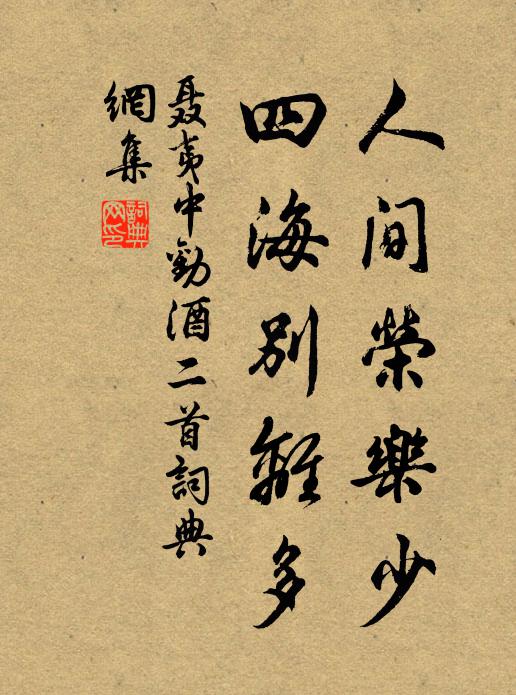 人間榮樂少
四海別離多
聶夷中勸酒二首詞典
網集
詞典
网印